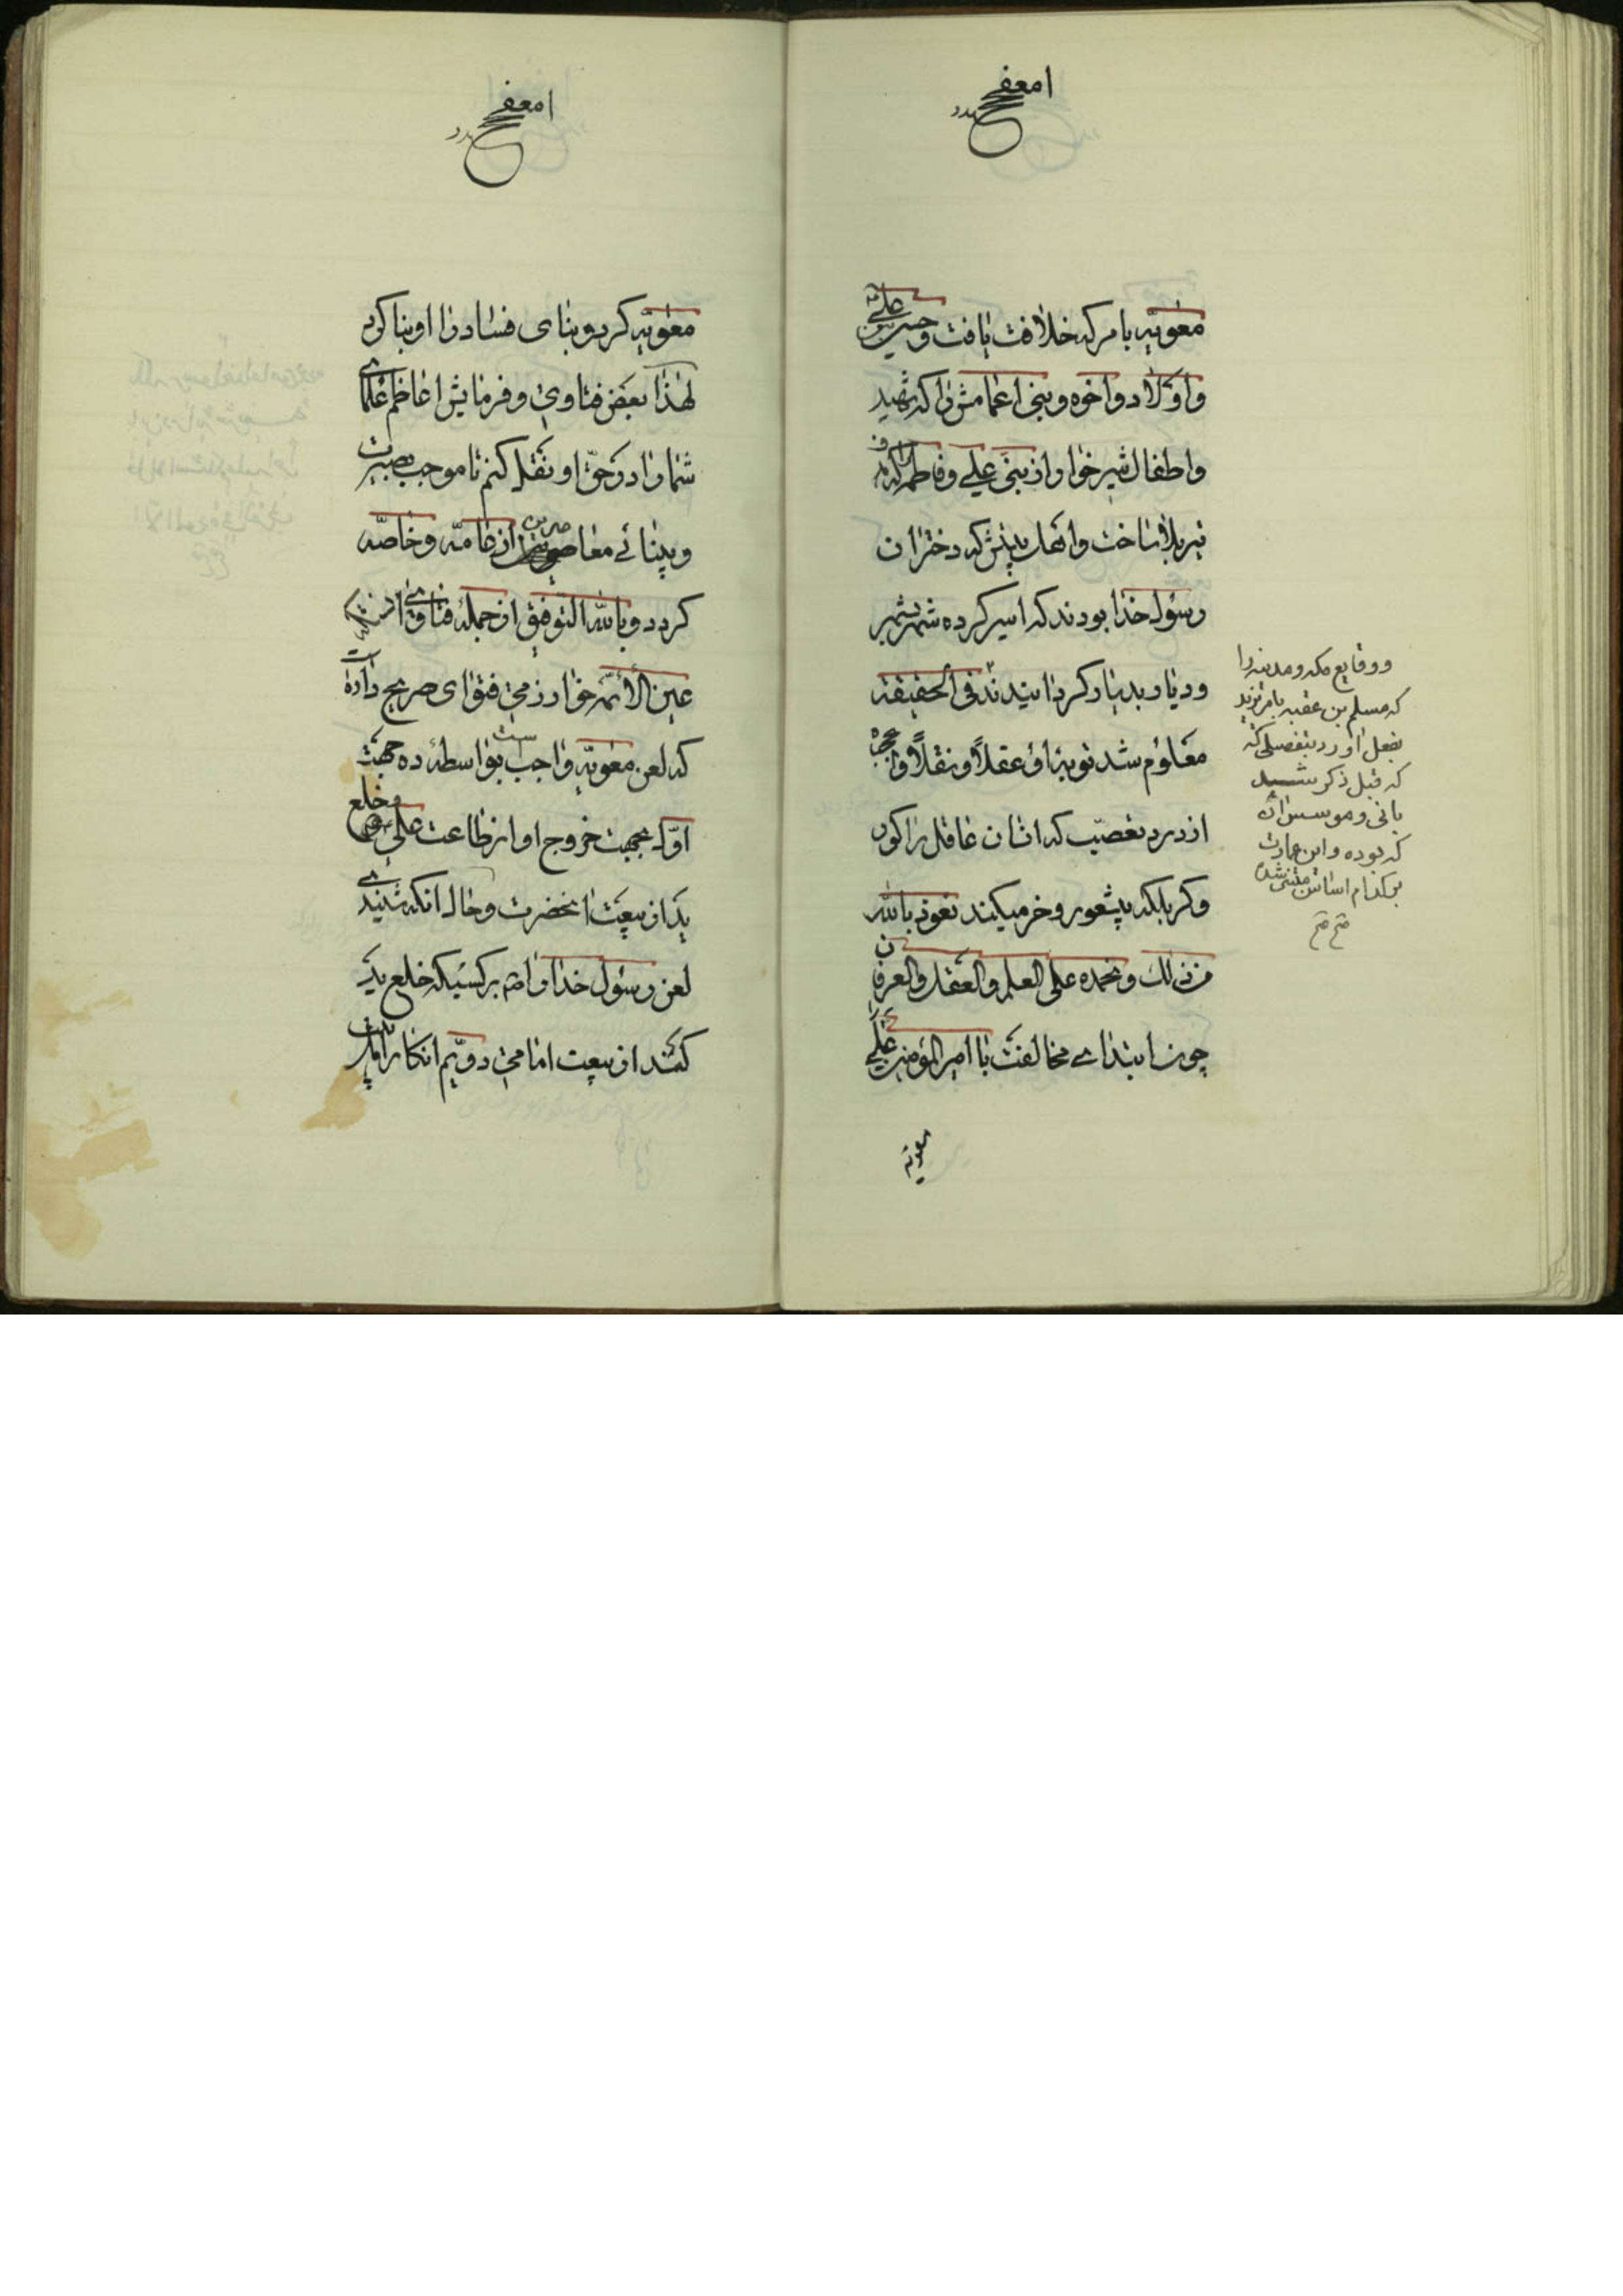 معویّه بامر که خلافت یافت و حسین بن علی
و اولاد و اخوه و بنی اعمامش را که شهید
و اطفال شیرخوار از بنی علی و فاطمه را که
تیر بلا ساخت و اهل بیتش که دختران
رسول خدا بودند که اسیر کرده شهر بشهر
و دیار بدیار گردانیدند فی الحقیقة
معلوم شد عقلاً و نقلاً و
از درد تعصّب که انسان عاقل را کور
و کر بلکه بیشعور و خر میکند نعوذ بالله
من ذلک و نحمده علی العلم و العقل و العرفان
چون ابتدای مخالفت با امیر المؤمنین علی
معویه
و وقایع مکه و مدینه را
که مسلم بن عقبه بامر یزید
بفعل آورد بتفصیلی که
که قبل ذکر شد
بانی و موسس آن
که بوده و این عمارت
بر کدام اساس مبتنی شده
صح صح
معویّه کرد و بنای فساد را او بنا کرد
لهذا بعض فتاوی و فرمایش اعاظم علمای
شما را در حقّ او نقل کنم تا موجب بصیرت
و بینائی معاصرین از عامّه و خاصّه
گردد و بالله التوفیق از جمله فتاوی
عین الأئمّه خوارزمی فتوای صریح داده
که لعن معویّه واجب است بواسطهٔ ده جهت
اوّل بجهت خروج او از طاعت علی و خلع
ید از بیعت آنحضرت و حال آنکه شنیدی
لعن رسول خدا را بر کسیکه خلع ید
کند از بیعت امامی دویّم انکار